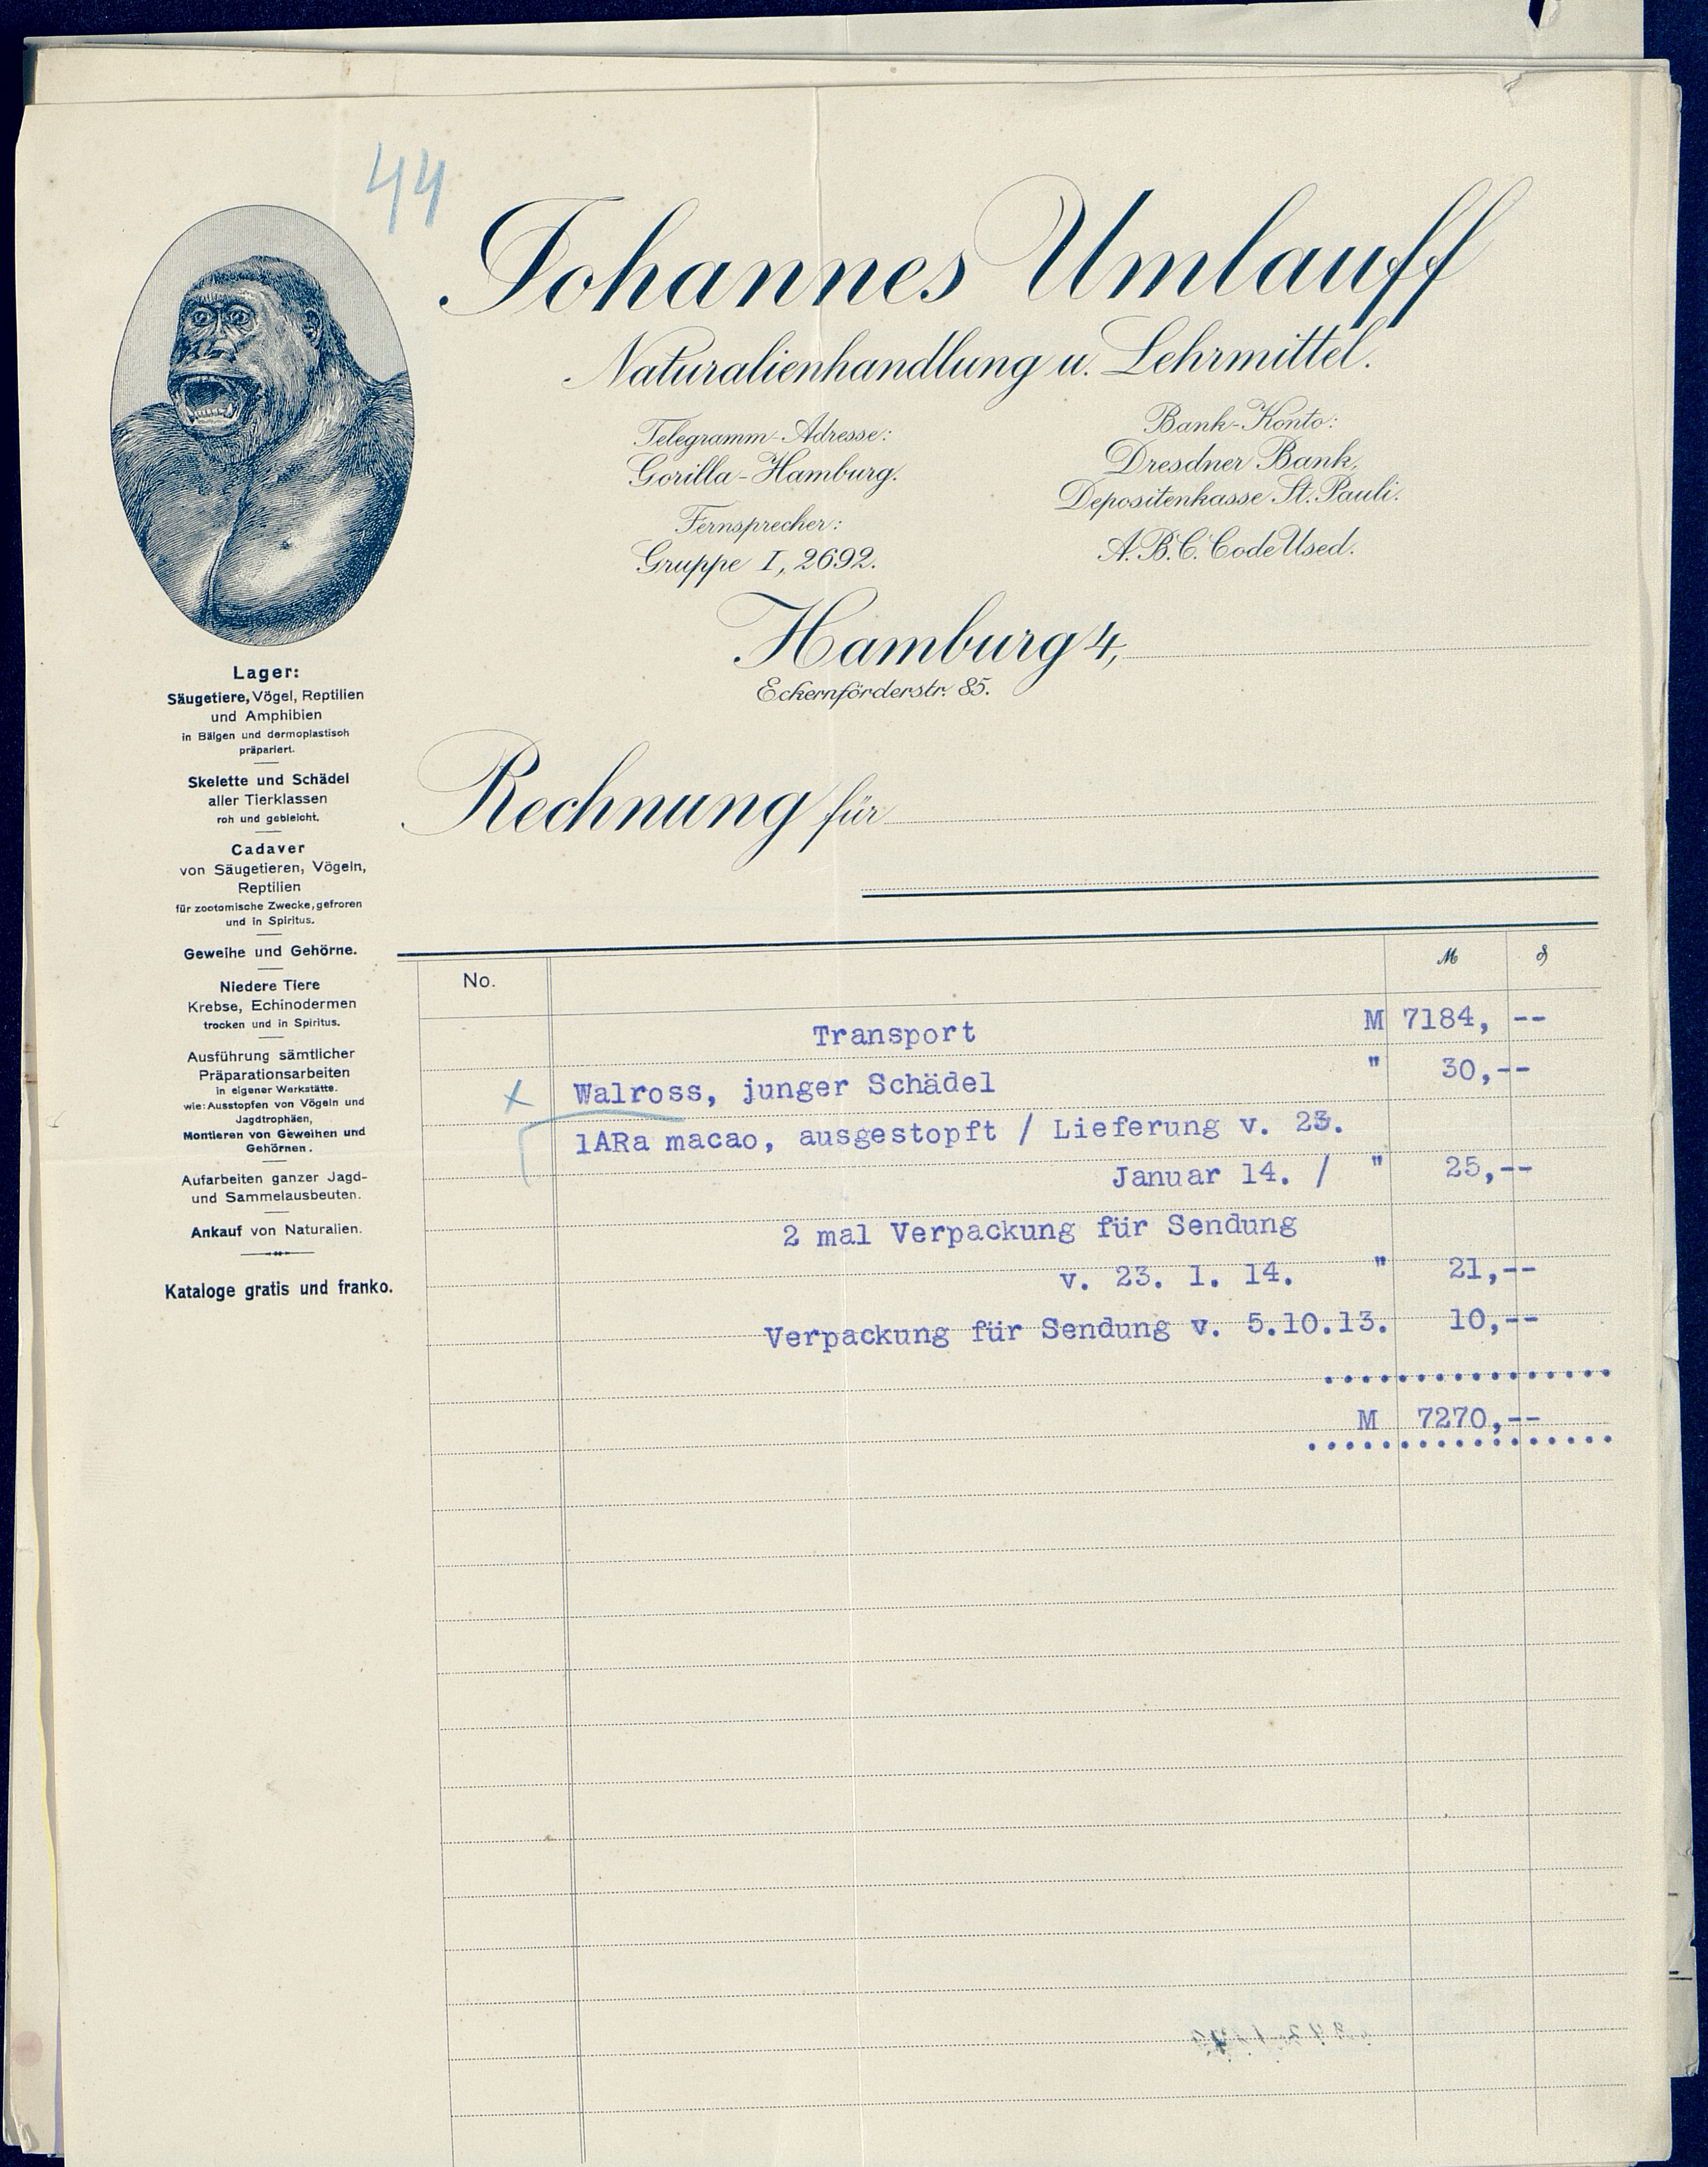 44
Johannes Umlauff
Naturalienhandlung u. Lehrmittel.
Telegramm-Adresse:
Gorilla-Hamburg.
Fernsprecher:
Gruppe I, 2692.
Bank-Konto:
Dresdner Bank,
Depositenkasse St. Pauli.
A.B.C. Code Used.
Hamburg 4,
Eckernförderstr. 85.
Lager:
Säugetiere, Vögel, Reptilien
und Amphibien
in Bälgen und dermoplastisch
präpariert.
Skelette und Schädel
aller Tierklassen
roh und gebleicht.
Cadaver
von Säugetieren, Vögeln,
Reptilien
für zootomische Zwecke, gefroren
und in Spiritus.
Geweihe und Gehörne.
Niedere Tiere
Krebse, Echinodermen
trocken und in Spiritus.
Ausführung sämtlicher
Präparationsarbeiten
in eigener Werkstätte.
wie: Ausstopfen von Vögeln und
Jagdtrophäen,
Montieren von Geweihen und
Gehörnen.
Aufarbeiten ganzer Jagd-
und Sammelausbeuten.
Ankauf von Naturalien.
Kataloge gratis und franko.
Rechnung für
No. M ₰
Transport M 7184, --
x Walross, junger Schädel " 30,--
1ARa macao, ausgestopft / Lieferung v. 23.
Januar 14. / " 25,--
2 mal Verpackung für Sendung
v. 23. 1. 14. " 21,--
Verpackung für Sendung v. 5.10.13. 10,--
M 7270,--